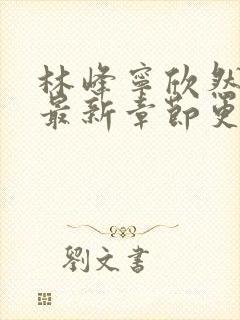 林峰寧欣然
最新章節更
劉文書